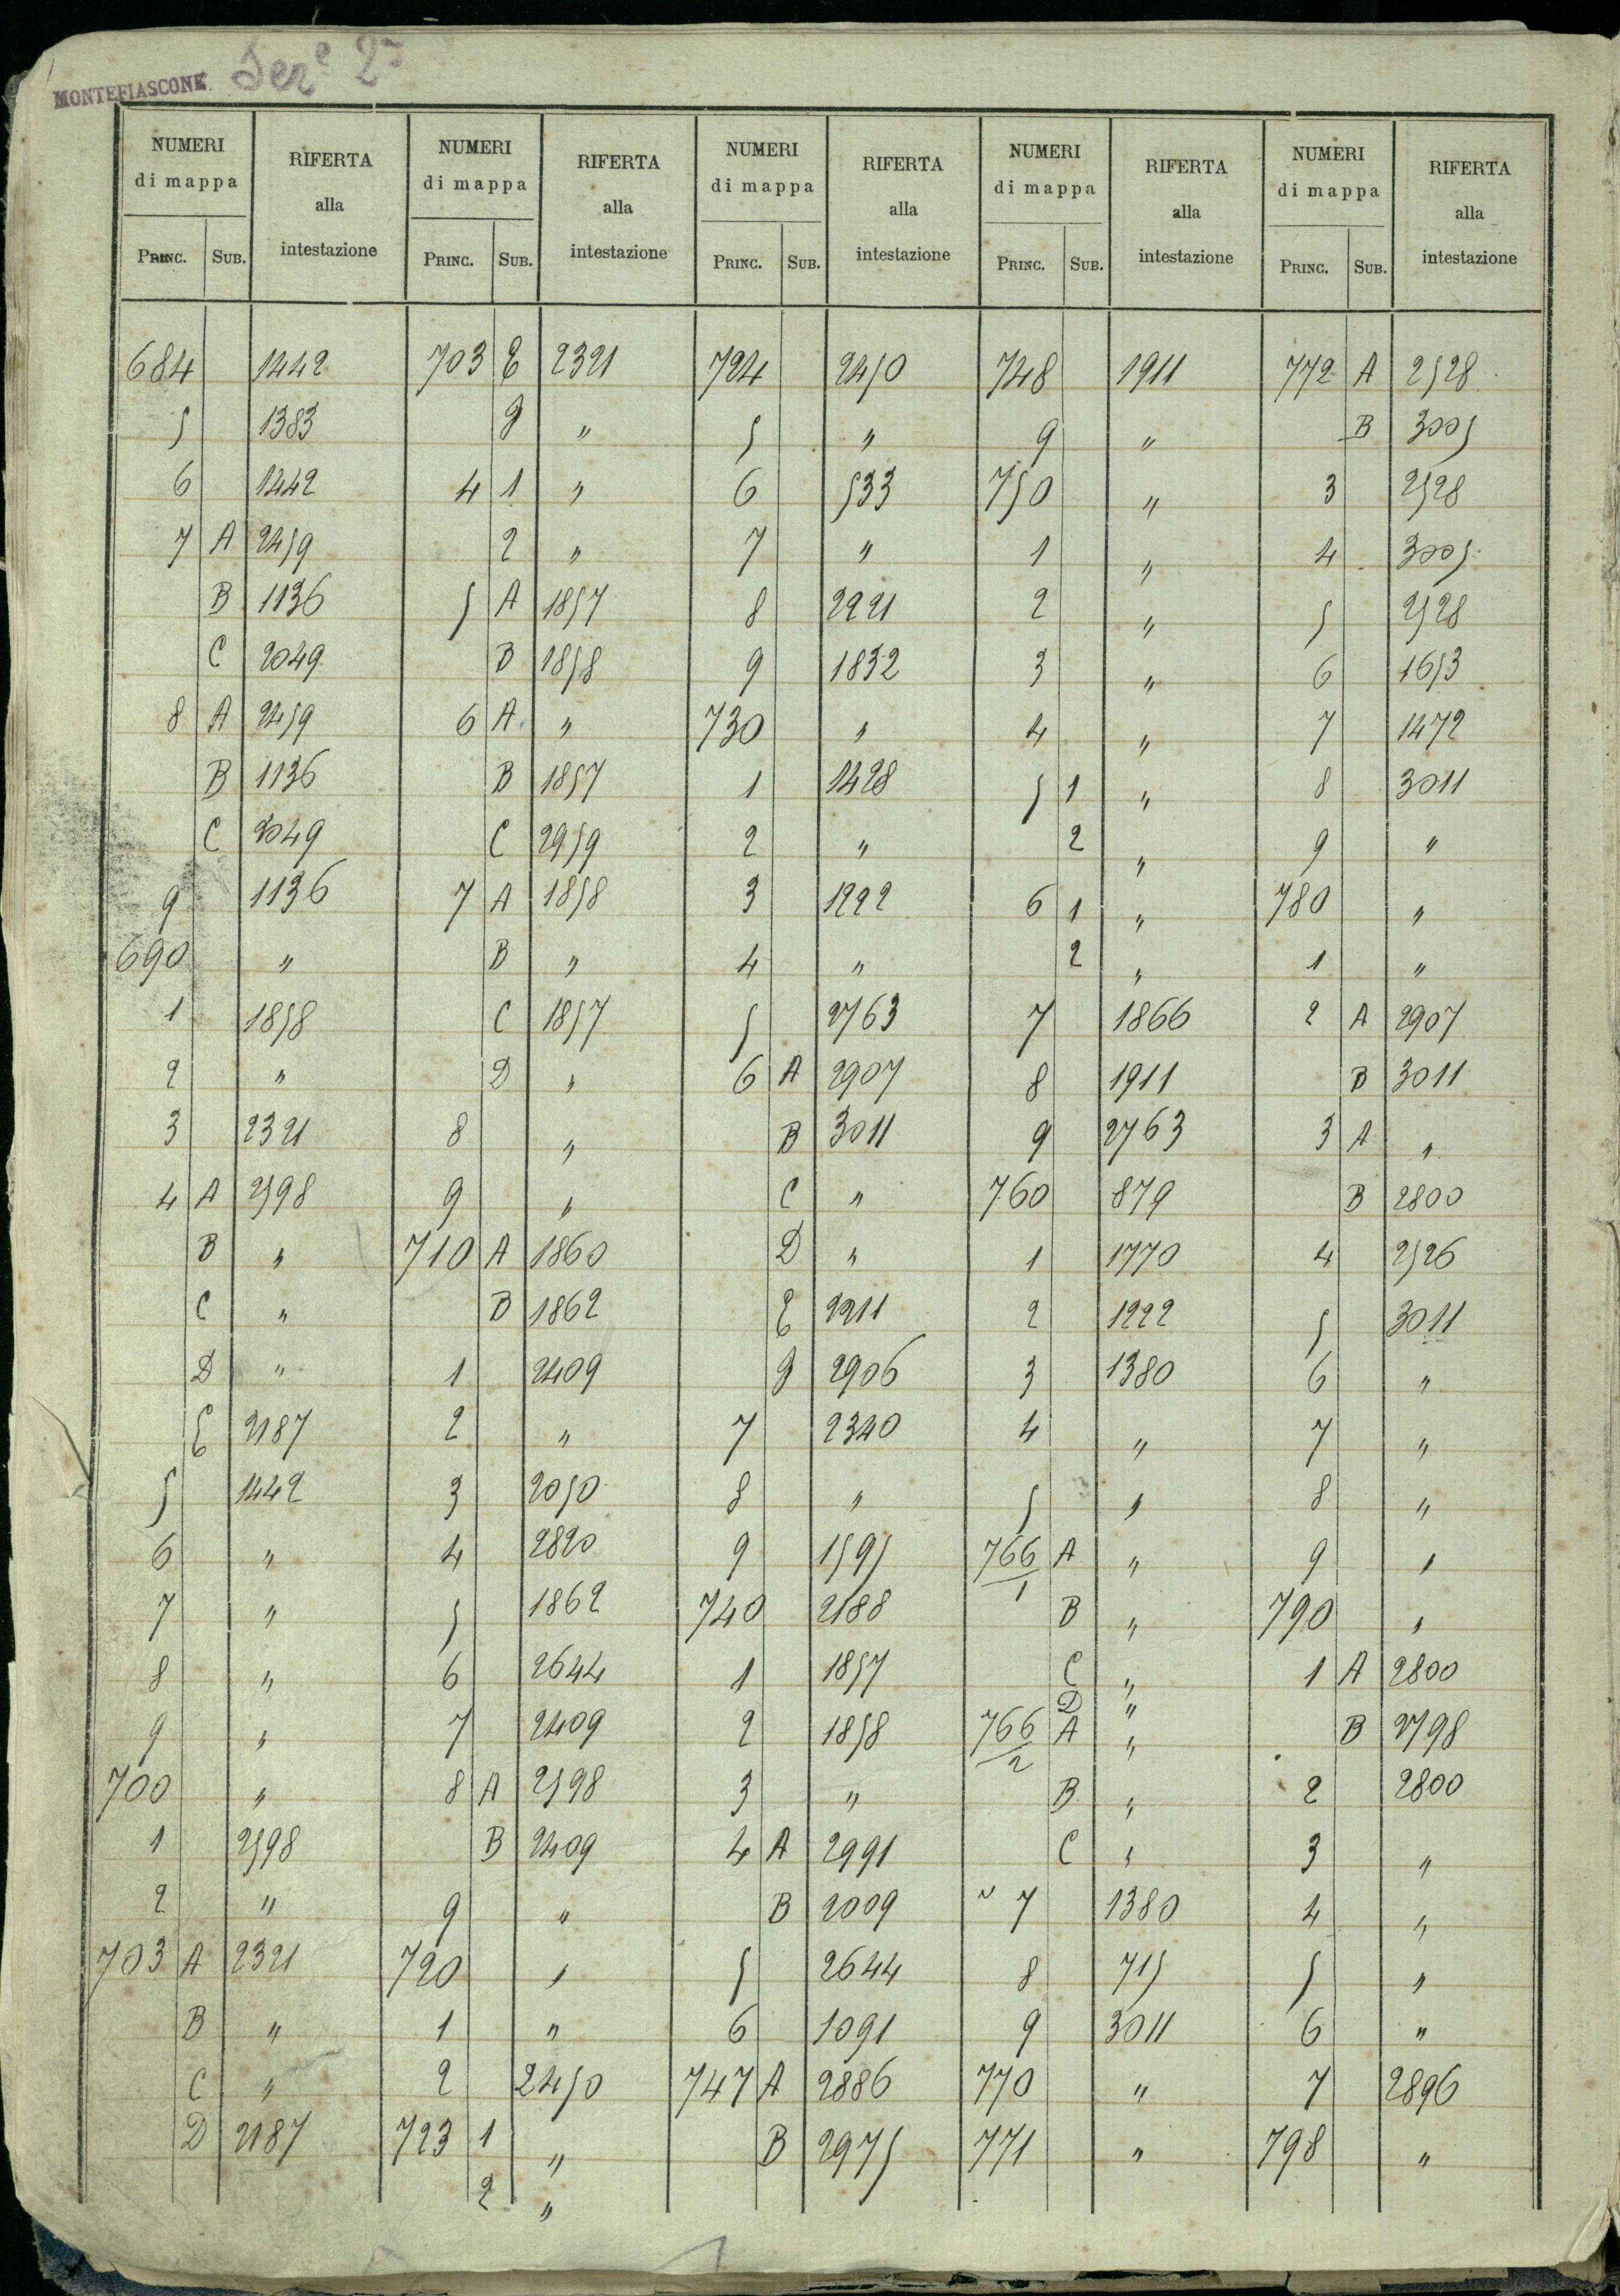 MONTEFIASCONE Ser.e 2a
NUMERI di mappa RIFERTA alla intestazione NUMERI di mappa RIFERTA alla intestazione NUMERI di mappa RIFERTA alla intestazione NUMERI di mappa RIFERTA alla intestazione NUMERI di mappa RIFERTA alla intestazione
PRINC. SUB. PRINC. SUB. PRINC. SUB. PRINC. SUB. PRINC. SUB.
684 1442 703 E 2321 724 2450 748 1911 772 A 2528
5 1383 F " 5 " 9 " B 3005
6 1442 4 1 " 6 533 750 " 3 2528
7 A 2459 2 " 7 " 1 " 4 3005
B 1136 5 A 1857 8 2221 2 " 5 2528
C 2049 B 1858 9 1832 3 " 6 1653
8 A 2459 6 A " 730 " 4 " 7 1472
B 1136 B 1857 1 1428 5 1 " 8 3011
C 2049 C 2959 2 " 2 " 9 "
9 1136 7 A 1858 3 1222 6 1 " 780 "
690 " B " 4 " 2 " 1 "
1 1858 C 1857 5 2763 7 1866 2 A 2907
2 " D " 6 A 2907 8 1911 B 3011
3 2321 8 " B 3011 9 2763 3 A "
4 A 2598 9 " C " 760 879 B 2800
B " 710 A 1860 D " 1 1770 4 2526
C " B 1862 E 2211 2 1222 5 3011
D " 1 2409 F 2906 3 1380 6 "
E 2187 2 " 7 2340 4 " 7 "
5 1442 3 2050 8 " 5 " 8 "
6 " 4 2820 9 1595 766/1 A " 9 "
7 " 5 1862 740 2188 B " 790 "
8 " 6 2644 1 1857 C " 1 A 2800
D "
9 " 7 2409 2 1858 766/2 A " B 2798
700 " 8 A 2598 3 " B " 2 2800
1 2598 B 2409 4 A 2991 C " 3 "
2 " 9 " B 2009 " 7 1380 4 "
703 A 2321 720 " 5 2644 8 715 5 "
B " 1 " 6 1091 9 3011 6 "
C " 2 2450 747 A 2886 770 " 7 2896
D 2187 723 1 " B 2975 771 " 798 "
2 "